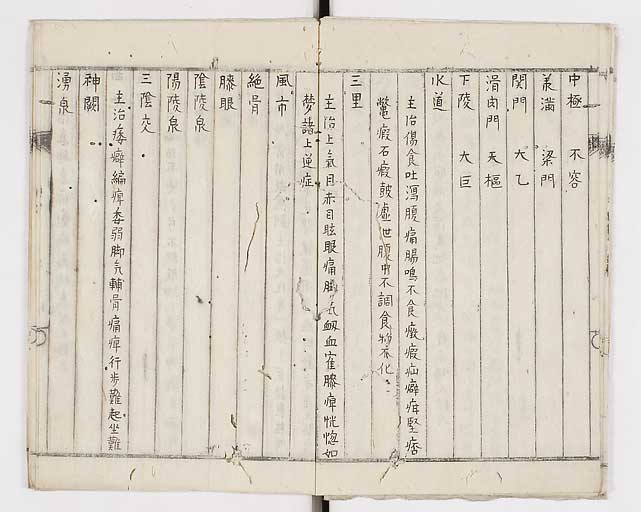 中極 不容
羙滿 梁門
関門 大乙
滑肉門 天樞
下陵 大巨
水道
主治傷食吐瀉腹痛腸鳴不食癥瘕疝癖痺堅痞
鱉瘕石瘕皷虛世腹中不調食物不化
三里
主治上氣目赤目眩眼痛脚气衂血寉膝痺恍惚如
夢諸上逆症
風市
絶骨
膝眼
陰陵泉
陽陵泉
三陰交
主治痿癖編痺委弱脚气輔骨痛痺行步難起坐難
神闕
湧泉